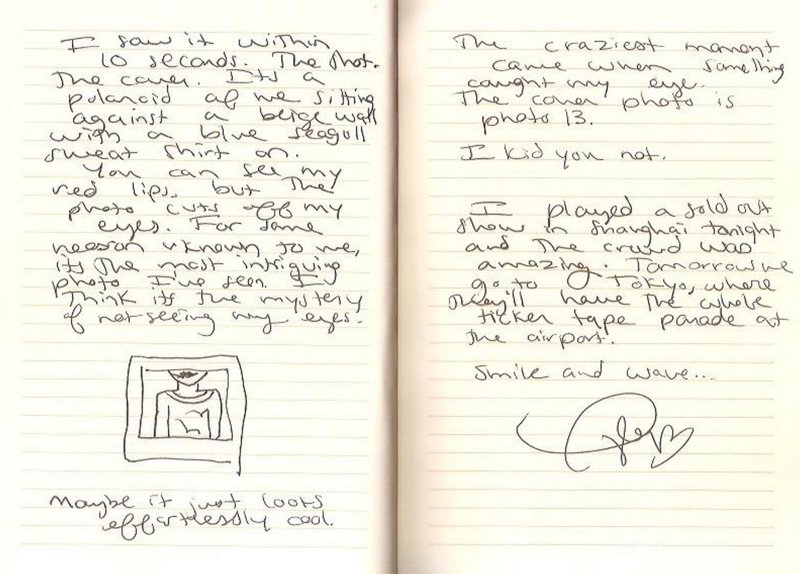 I saw it within
10 seconds. The shot.
The cover. Its a
polaroid of me sitting
against a beige wall
with a blue seagull
sweat shirt on.
You can see my
red lips, but the
photo cuts off my
eyes. For some
reason unknown to me,
its the most intriguing
photo I've seen. I
think its the mystery
of not seeing my eyes.
Maybe it just looks
effortlessly cool.
The craziest moment
came when something
caught my eye.
The cover photo is
photo 13.
I kid you not.
I played a sold out
show in Shanghai tonight
and the crowd was
amazing. Tomorrow we
go to Tokyo, where
they'll have the whole
ticker tape parade at
the airport.
Smile and wave...